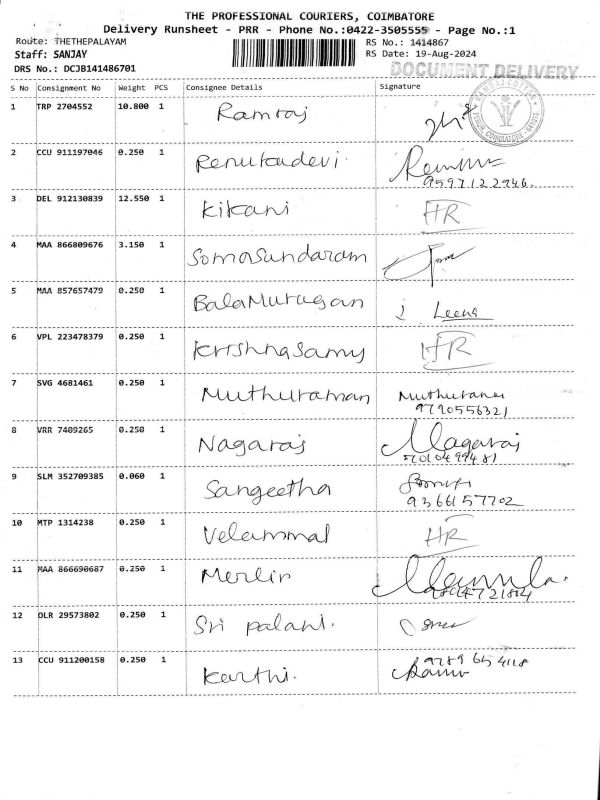 THE PROFESSIONAL COURIERS, COIMBATORE
Delivery Runsheet - PRR - Phone No.:0422-3505555 - Page No.:1
Route: THETHEPALAYAM RS No.: 1414867
Staff: SANJAY RS Date: 19-Aug-2024
DRS No.: DCJB141486701 DOCUMENT DELIVERY
S No Consignment No Weight PCS Consignee Details Signature
1 TRP 2704552 10.800 1 Ramraj
2 CCU 911197046 0.250 1 Renukadevi
9597122946.
3 DEL 912130839 12.550 1 Kikani HR
4 MAA 866809676 3.150 1 Somasundaram
5 MAA 857657479 0.250 1 BalaMurugan Leena
6 VPL 223478379 0.250 1 Krishnasamy HR
7 SVG 4681461 0.250 1 Muthuraman
9790556321
8 VRR 7409265 0.250 1 Nagaraj Nagaraj
9 SLM 352709385 0.060 1 Sangeetha
9366157702
10 MTP 1314238 0.250 1 Velammal HR
11 MAA 866690687 0.250 1 Merlin
12 DLR 29573802 0.250 1 Sri palani.
13 CCU 911200158 0.250 1 Karthi. 9789 654118